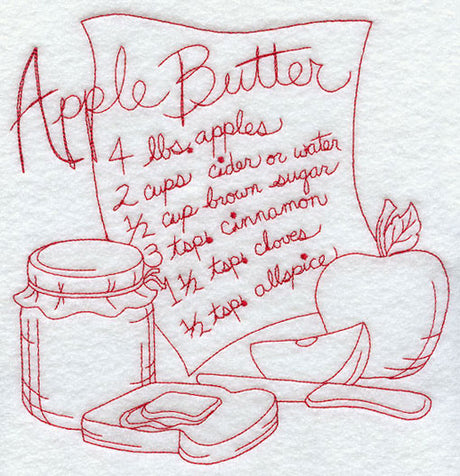 Apple Butter
4 lbs. apples
2 cups cider or water
1/2 cup brown sugar
3 tsp. cinnamon
1 1/2 tsp. cloves
1/2 tsp. allspice